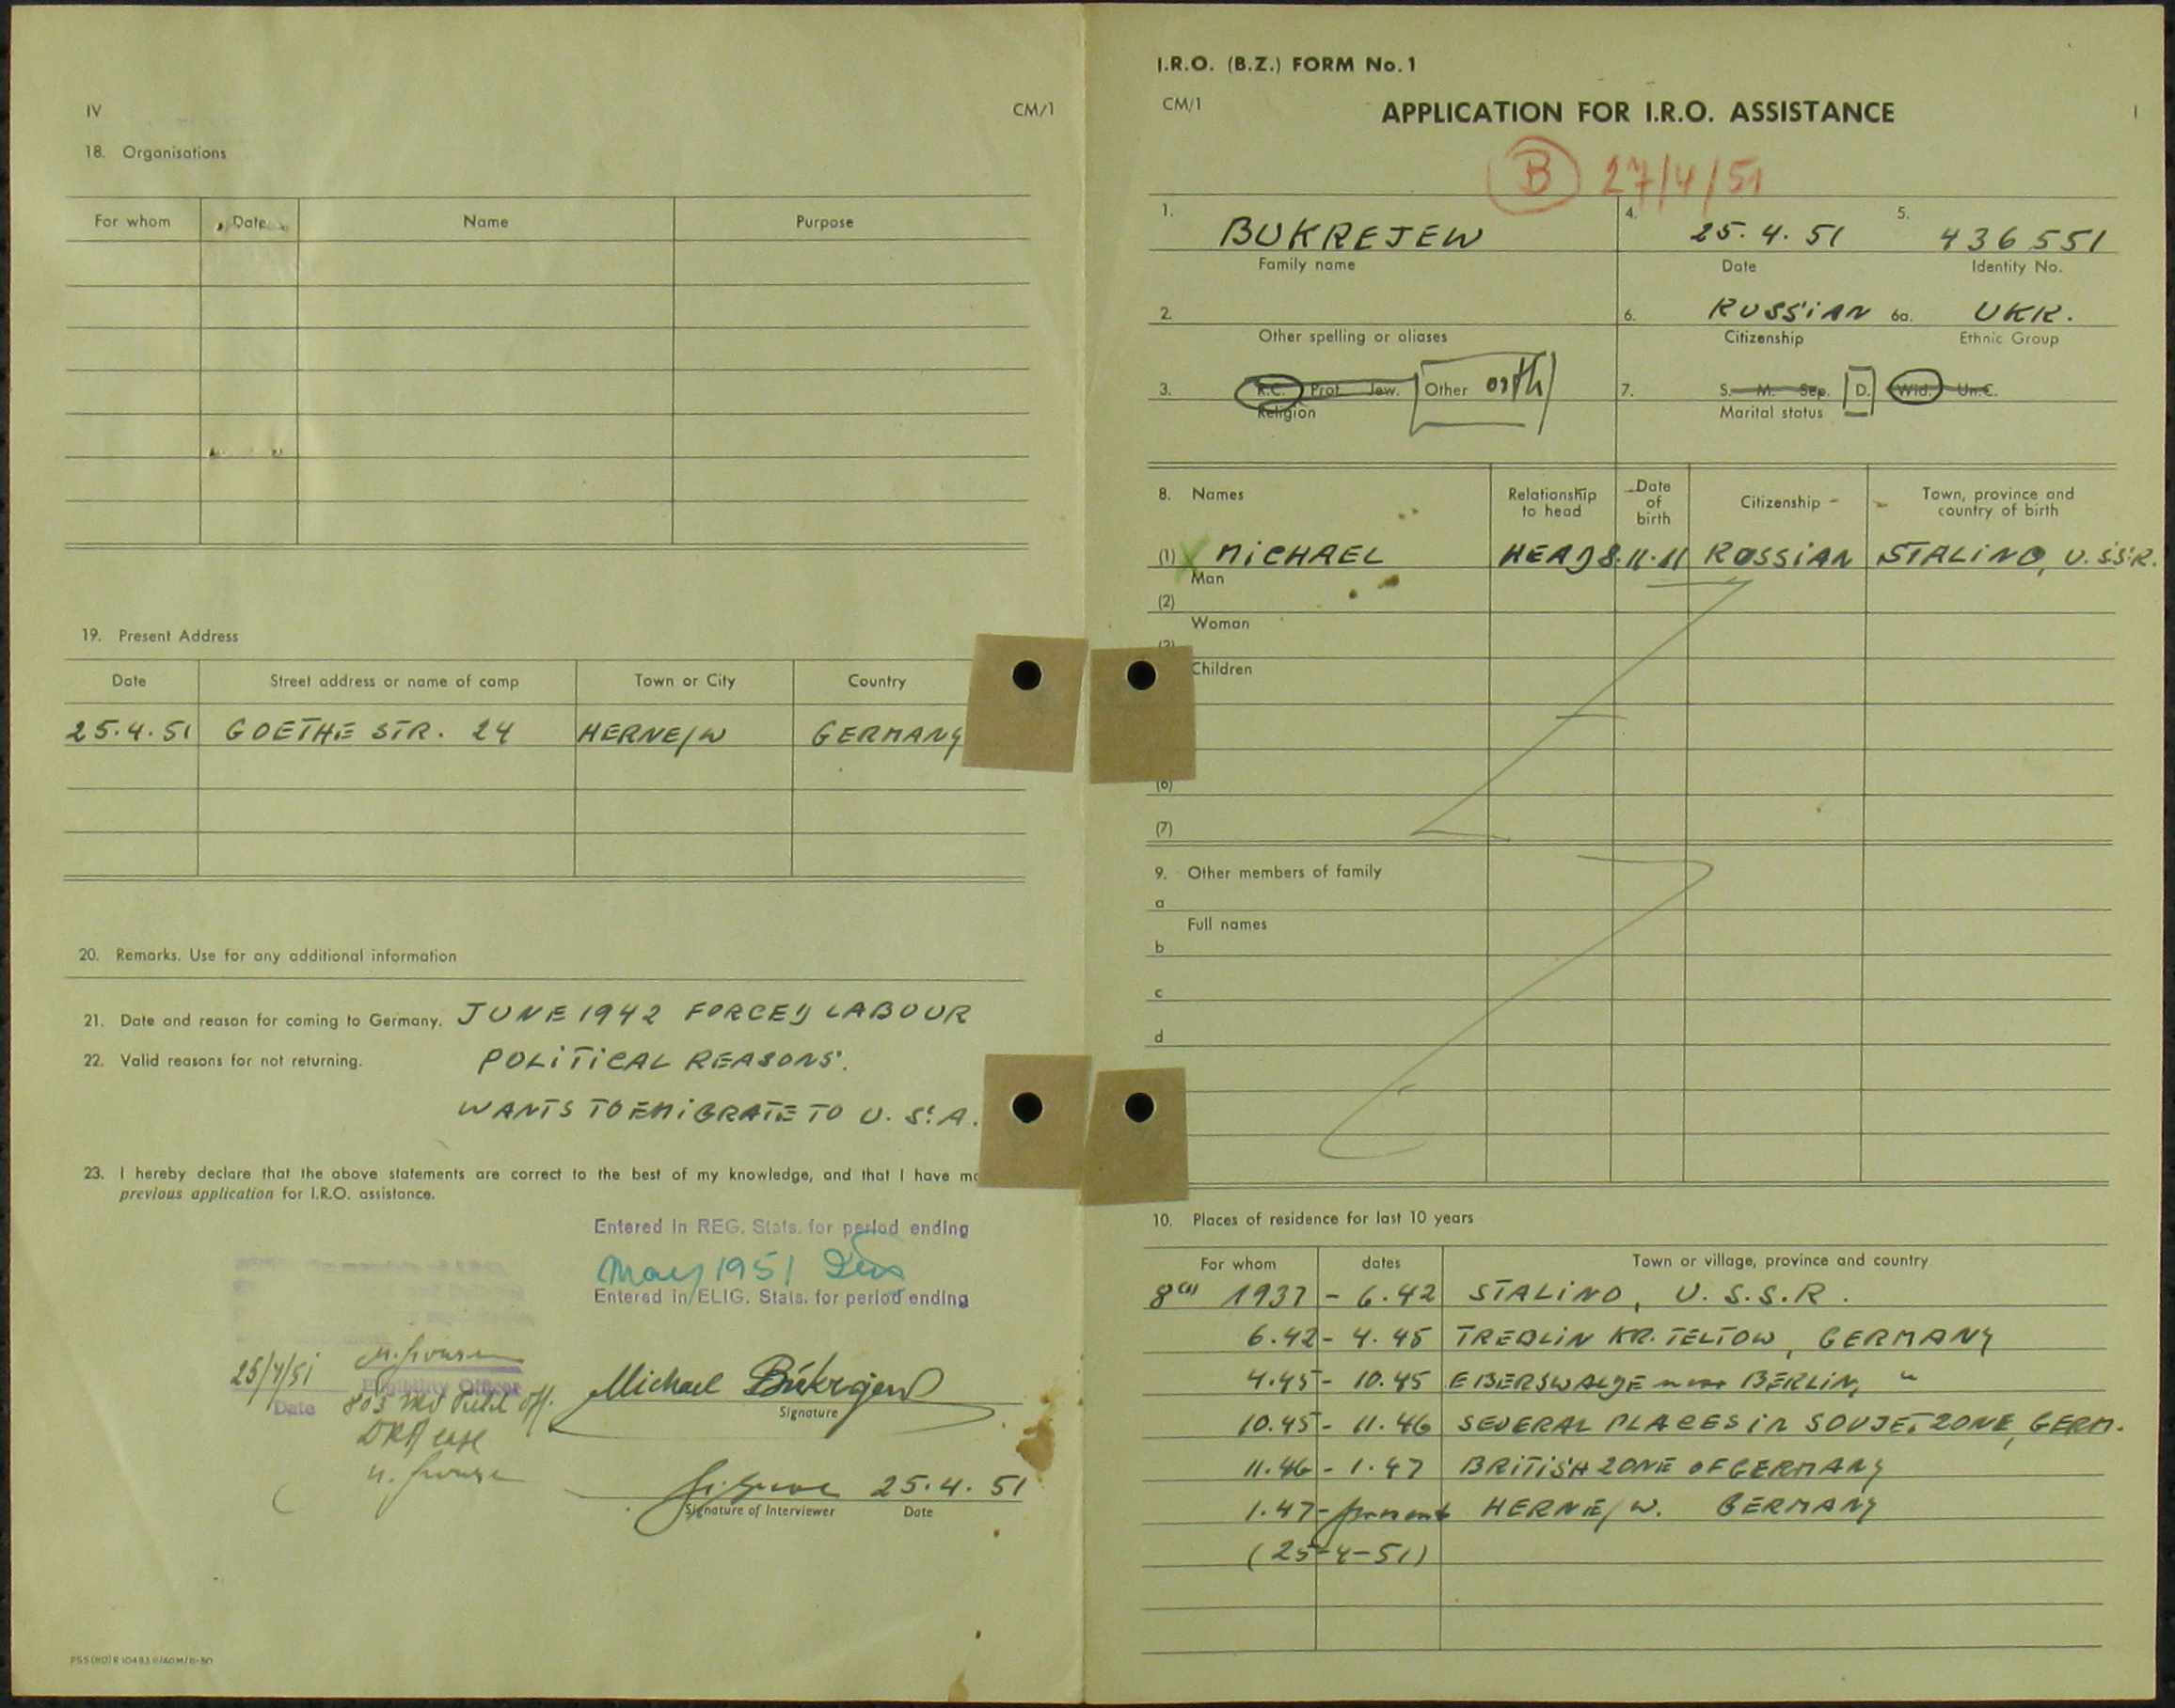 IV
CM/1
18. Organisations
For whom Date Name Purpose
19. Present Address
Date Street address or name of camp Town or City Country
25.4.51 GOETHE STR. 24 HERNE/W GERMANY
20. Remarks. Use for any additional information
21. Date and reason for coming to Germany. JUNE 1942 FORCED LABOUR
22. Valid reasons for not returning. POLITICAL REASONS.
WANTS TO EMIGRATE TO U.S.A.
23. I hereby declare that the above statements are correct to the best of my knowledge, and that I have
previous application for I.R.O. assistance.
Entered in REG. Stats. for period ending
May 1951
Entered in ELIG. Stats. for period ending
25/4/51
Eligibility Officer
Date
Michael Bukrejew
Signature
25.4.51
Signature of Interviewer Date
I.R.O. (B.Z.) FORM No. 1
CM/1 APPLICATION FOR I.R.O. ASSISTANCE I
B 27/4/51
1. BUKREJEW 4. 25.4.51 5. 436551
Family name Date Identity No.
2. 6. RUSSIAN 6a. UKR.
Other spelling or aliases Citizenship Ethnic Group
3. R.C. Prot. Jew. Other orth 7. S. M. Sep. D. Wid. Un.C.
Religion Marital status
8. Names Relationship to head Date of birth Citizenship Town, province and country of birth
(1) X MICHAEL HEAD 8.11.11 RUSSIAN STALINO, U.S.S.R.
Man
(2)
Woman
Children
(6)
(7)
9. Other members of family
a
Full names
b
c
d
10. Places of residence for last 10 years
For whom dates Town or village, province and country
8(1) 1937 - 6.42 STALINO, U.S.S.R.
6.42 - 4.45 TREBLIN KR. TELTOW, GERMANY
4.45 - 10.45 EBERSWALDE near BERLIN, "
10.45 - 11.46 SEVERAL PLACES IN SOVJET. ZONE, GERM.
11.46 - 1.47 BRITISH ZONE OF GERMANY
1.47 - present HERNE/W. GERMANY
(25-4-51)